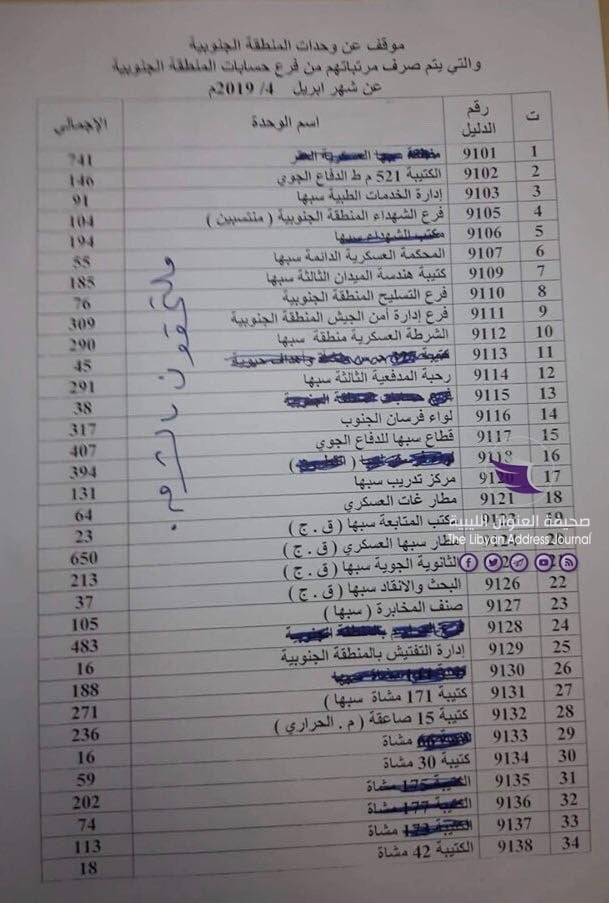 موقف عن وحدات المنطقة الجنوبية
والتي يتم صرف مرتباتهم من فرع حسابات المنطقة الجنوبية
عن شهر ابريل 4/ 2019م
ت رقم الدليل اسم الوحدة الإجمالي
1 9101 منطقة سبها العسكرية 741
2 9102 الكتيبة 521 م ط الدفاع الجوي 146
3 9103 إدارة الخدمات الطبية سبها 91
4 9105 فرع الشهداء المنطقة الجنوبية ( منتسبين ) 104
5 9106 مكتب الشهداء سبها 194
6 9107 المحكمة العسكرية الدائمة سبها 55
7 9109 كتيبة هندسة الميدان الثالثة سبها 185
8 9110 فرع التسليح المنطقة الجنوبية 76
9 9111 فرع إدارة أمن الجيش المنطقة الجنوبية 309
10 9112 الشرطة العسكرية منطقة سبها 290
11 9113 كتيبة وأهداف حيوية 45
12 9114 رحبة المدفعية الثالثة سبها 291
13 9115 38
14 9116 لواء فرسان الجنوب 317
15 9117 قطاع سبها للدفاع الجوي 407
16 9118 394
17 9120 مركز تدريب سبها 131
18 9121 مطار غات العسكري 64
19 مكتب المتابعة سبها ( ق . ج ) 23
مطار سبها العسكري ( ق . ج ) 650
الثانوية الجوية سبها ( ق . ج ) 213
22 9126 البحث والانقاد سبها ( ق . ج ) 37
23 9127 صنف المخابرة ( سبها ) 105
24 9128 بالمنطقة الجنوبية 483
25 9129 إدارة التفتيش بالمنطقة الجنوبية 16
26 9130 188
27 9131 كتيبة 171 مشاة سبها ) 271
28 9132 كتيبة 15 صاعقة ( م . الحراري ) 236
29 9133 مشاة 16
30 9134 كتيبة 30 مشاة 59
31 9135 الكتيبة 175 مشاة 202
32 9136 الكتيبة 177 مشاة 74
33 9137 الكتيبة 173 مشاة 113
34 9138 الكتيبة 42 مشاة 18
صحيفة العنوان الليبية
The Libyan Address Journal